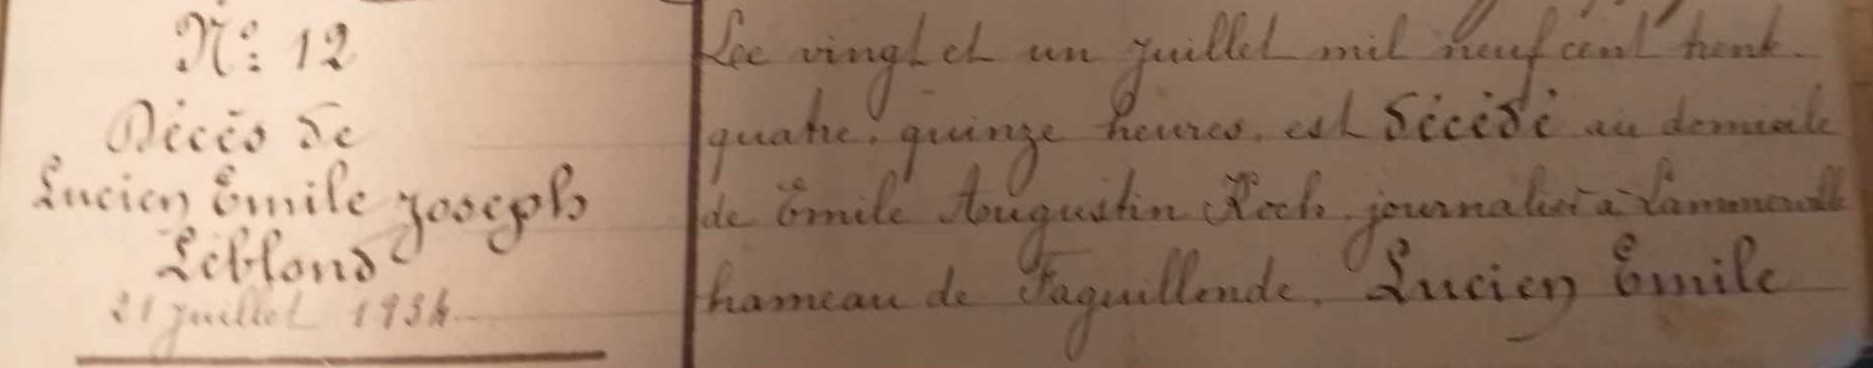 N° 12
Décès de
Lucien Emile Joseph
Leblond
21 juillet 1934
Le vingt et un juillet mil neuf cent trente
quatre, quinze heures, est décédé au domicile
de Emile Augustin Roch, journalier à Lammerville
hameau de Faguillonde. Lucien Emile